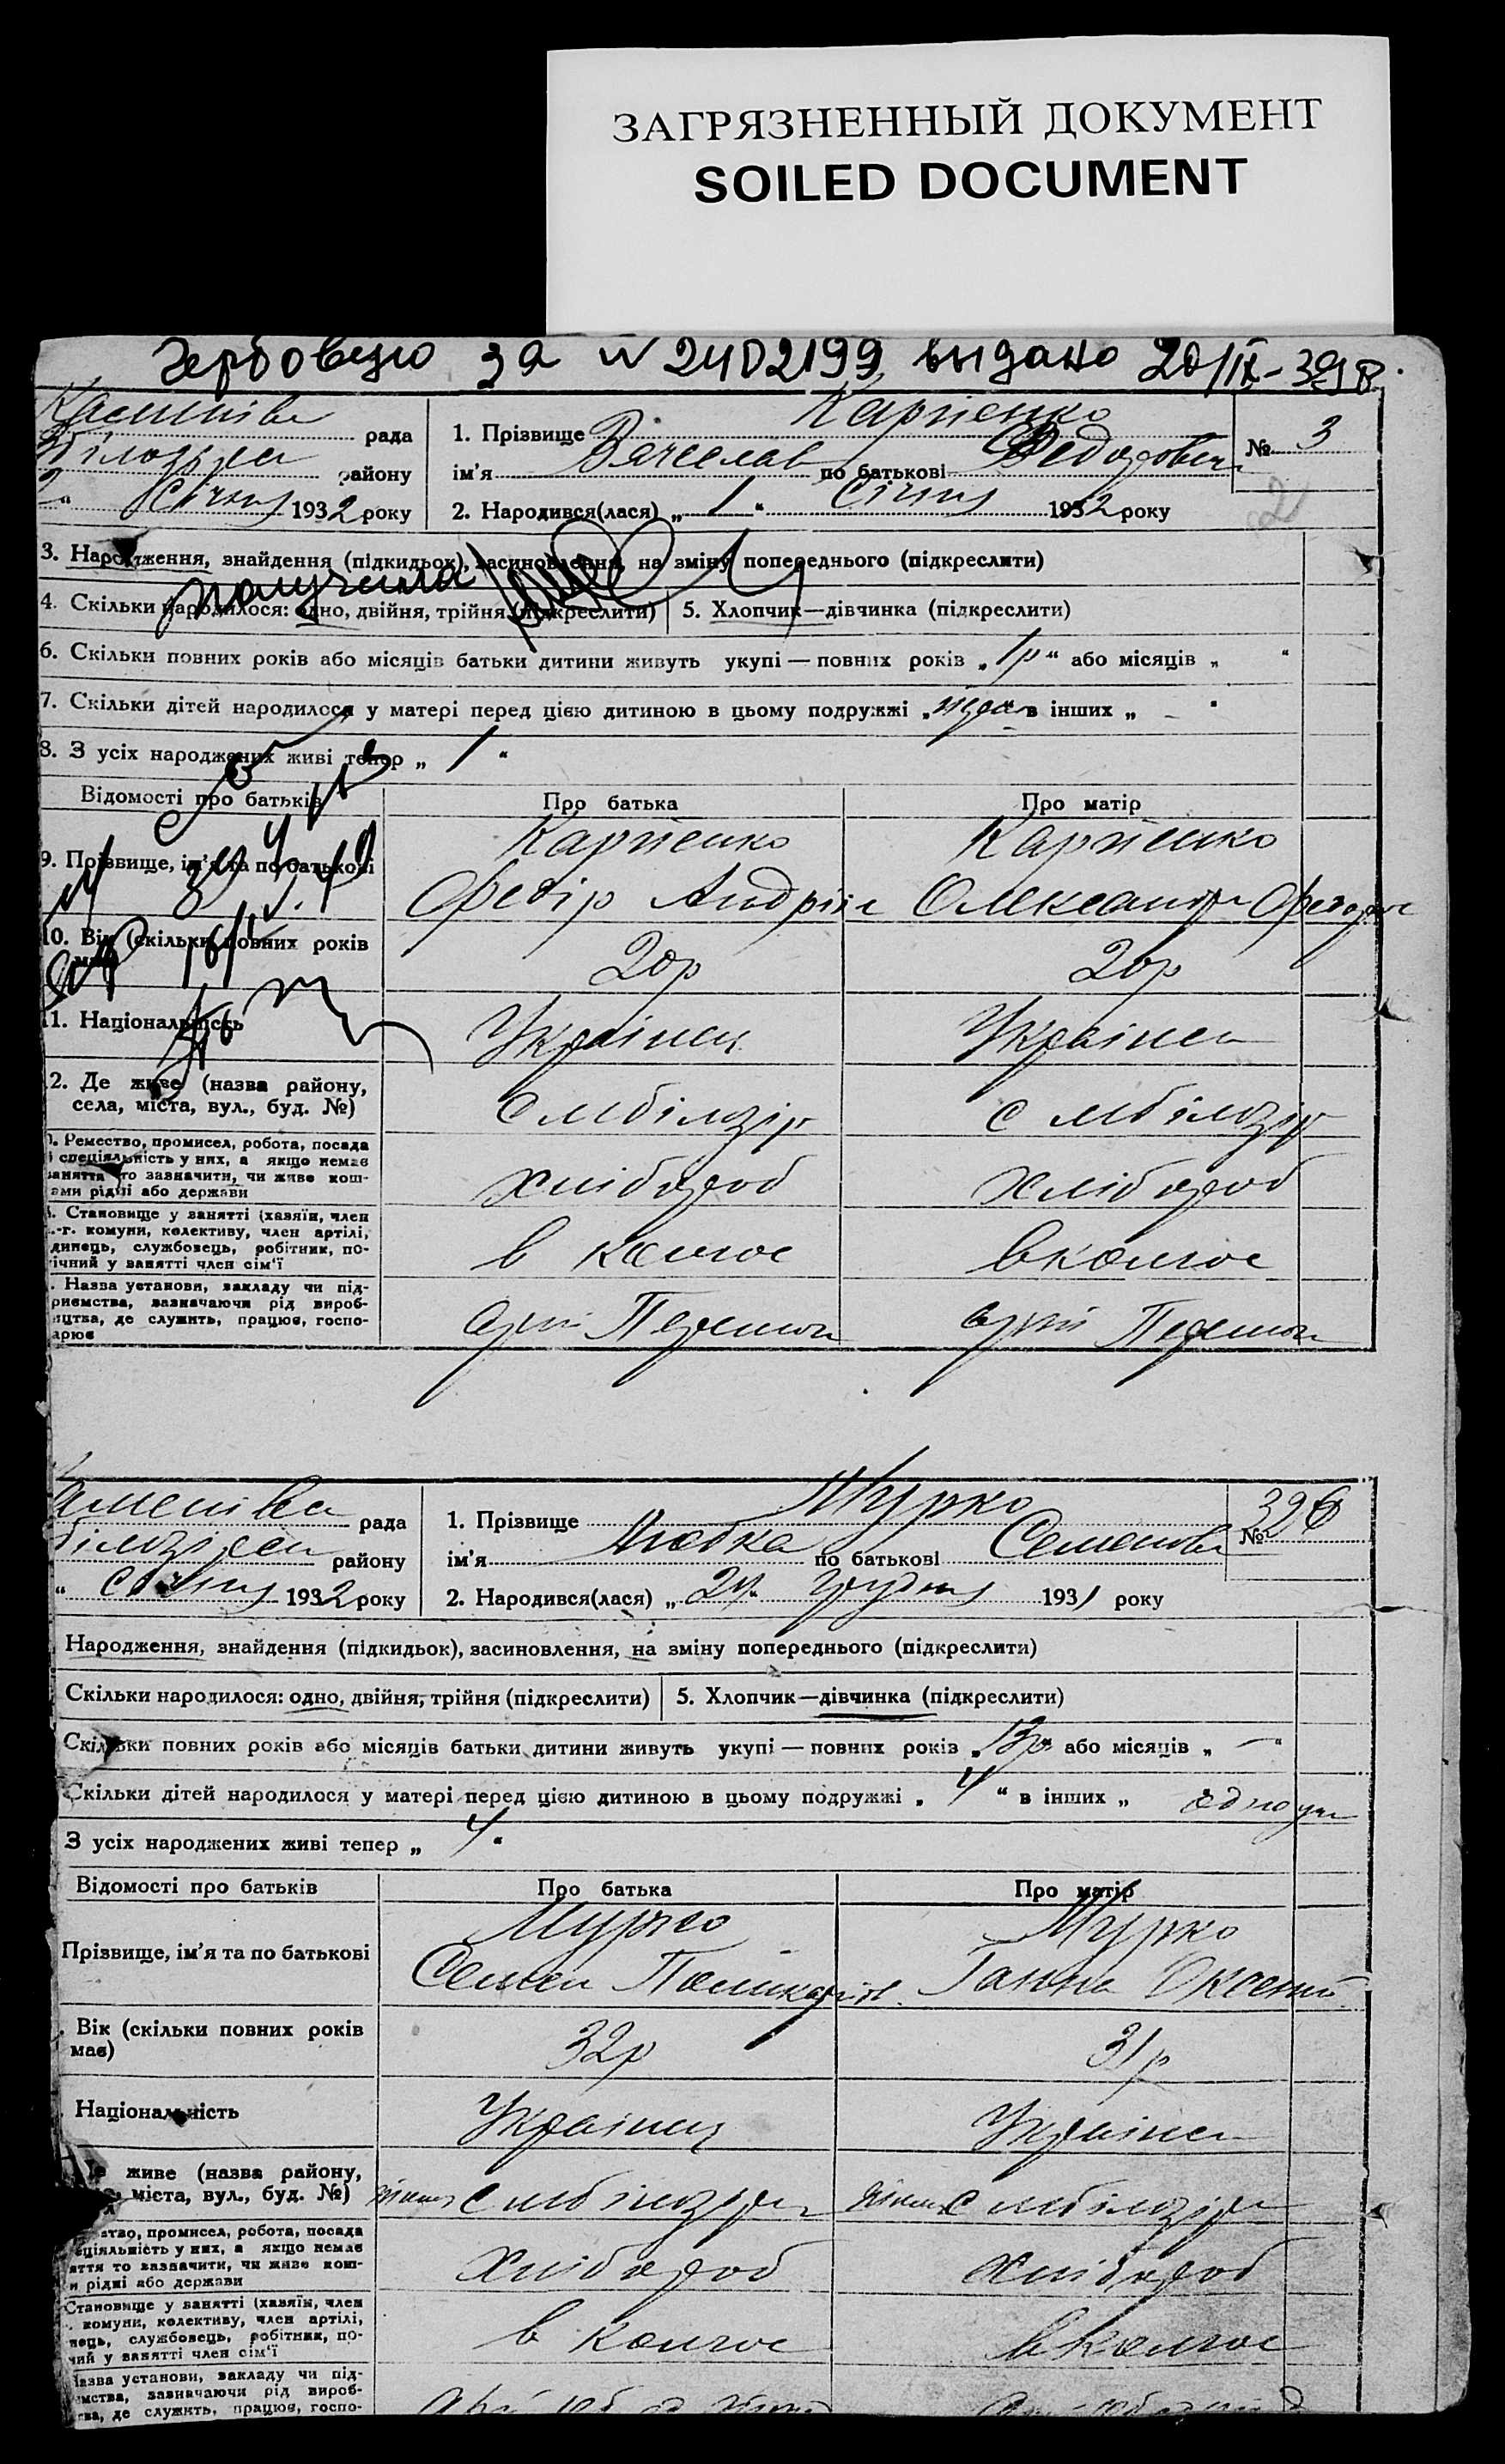 ЗАГРЯЗНЕННЫЙ ДОКУМЕНТ
SOILED DOCUMENT
за № выдано 20/IX-39 р.
рада
району
Січня 1932 року
1. Прізвище Карпенко
ім'я Вячеслав по батькові Федорович
2. Народився(лася) „ 1 “ Січня 1932 року
№ 3
3. Народження, знайдення (підкидьок), засиновлення, на зміну попереднього (підкреслити)
получила
4. Скільки народилося: одно, двійня, трійня (підкреслити)
5. Хлопчик—дівчинка (підкреслити)
6. Скільки повних років або місяців батьки дитини живуть укупі — повних років „ 1р “ або місяців „ “
7. Скільки дітей народилося у матері перед цією дитиною в цьому подружжі „ “ в інших „ – “
8. З усіх народжених живі тепер „ 1 “
Відомості про батьків
Про батька
Про матір
9. Прізвище, ім'я та по батькові
Карпенко
Федір Андрій
Карпенко
Олександра
10. Вік (скільки повних років має)
20р
20р
11. Національність
Українец
Українса
12. Де живе (назва району,
села, міста, вул., буд. №)
с мбілозір
с мбілозір
Ремество, промисел, робота, посада
і спеціяльність у них, а якщо немає
заняття то зазначити, чи живе кош-
тами рідні або держави
хлібороб
хлібороб
Становище у занятті (хазяїн, член
с.-г. комуни, колективу, член артілі,
одинець, службовець, робітник, по-
мічний у занятті член сім'ї
в колгос
в колгос
Назва установи, закладу чи під-
приємства, зазначаючи рід вироб-
ництва, де служить, працює, госпо-
дарює
рада
району
Січня 1932 року
1. Прізвище Мурко
ім'я Любка по батькові Семенова
2. Народився(лася) „ “ грудня 1931 року
№ 326
Народження, знайдення (підкидьок), засиновлення, на зміну попереднього (підкреслити)
Скільки народилося: одно, двійня, трійня (підкреслити)
5. Хлопчик—дівчинка (підкреслити)
Скільки повних років або місяців батьки дитини живуть укупі — повних років „ 13р “ або місяців „ — “
Скільки дітей народилося у матері перед цією дитиною в цьому подружжі „ 4 “ в інших „
З усіх народжених живі тепер „ 4 “
Відомості про батьків
Про батька
Про матір
Прізвище, ім'я та по батькові
Мурко
Семен
Мурко
Ганна
Вік (скільки повних років
має)
32р
31р
Національність
Українец
Українса
Де живе (назва району,
села, міста, вул., буд. №)
с мбілозір
с мбілозір
Ремество, промисел, робота, посада
спеціяльність у них, а якщо немає
заняття то зазначити, чи живе кош-
тами рідні або держави
хлібороб
хлібороб
Становище у занятті (хазяїн, член
комуни, колективу, член артілі,
одинець, службовець, робітник, по-
мічний у занятті член сім'ї
в колгос
в колгос
Назва установи, закладу чи під-
приємства, зазначаючи рід вироб-
ництва, де служить, працює, госпо-